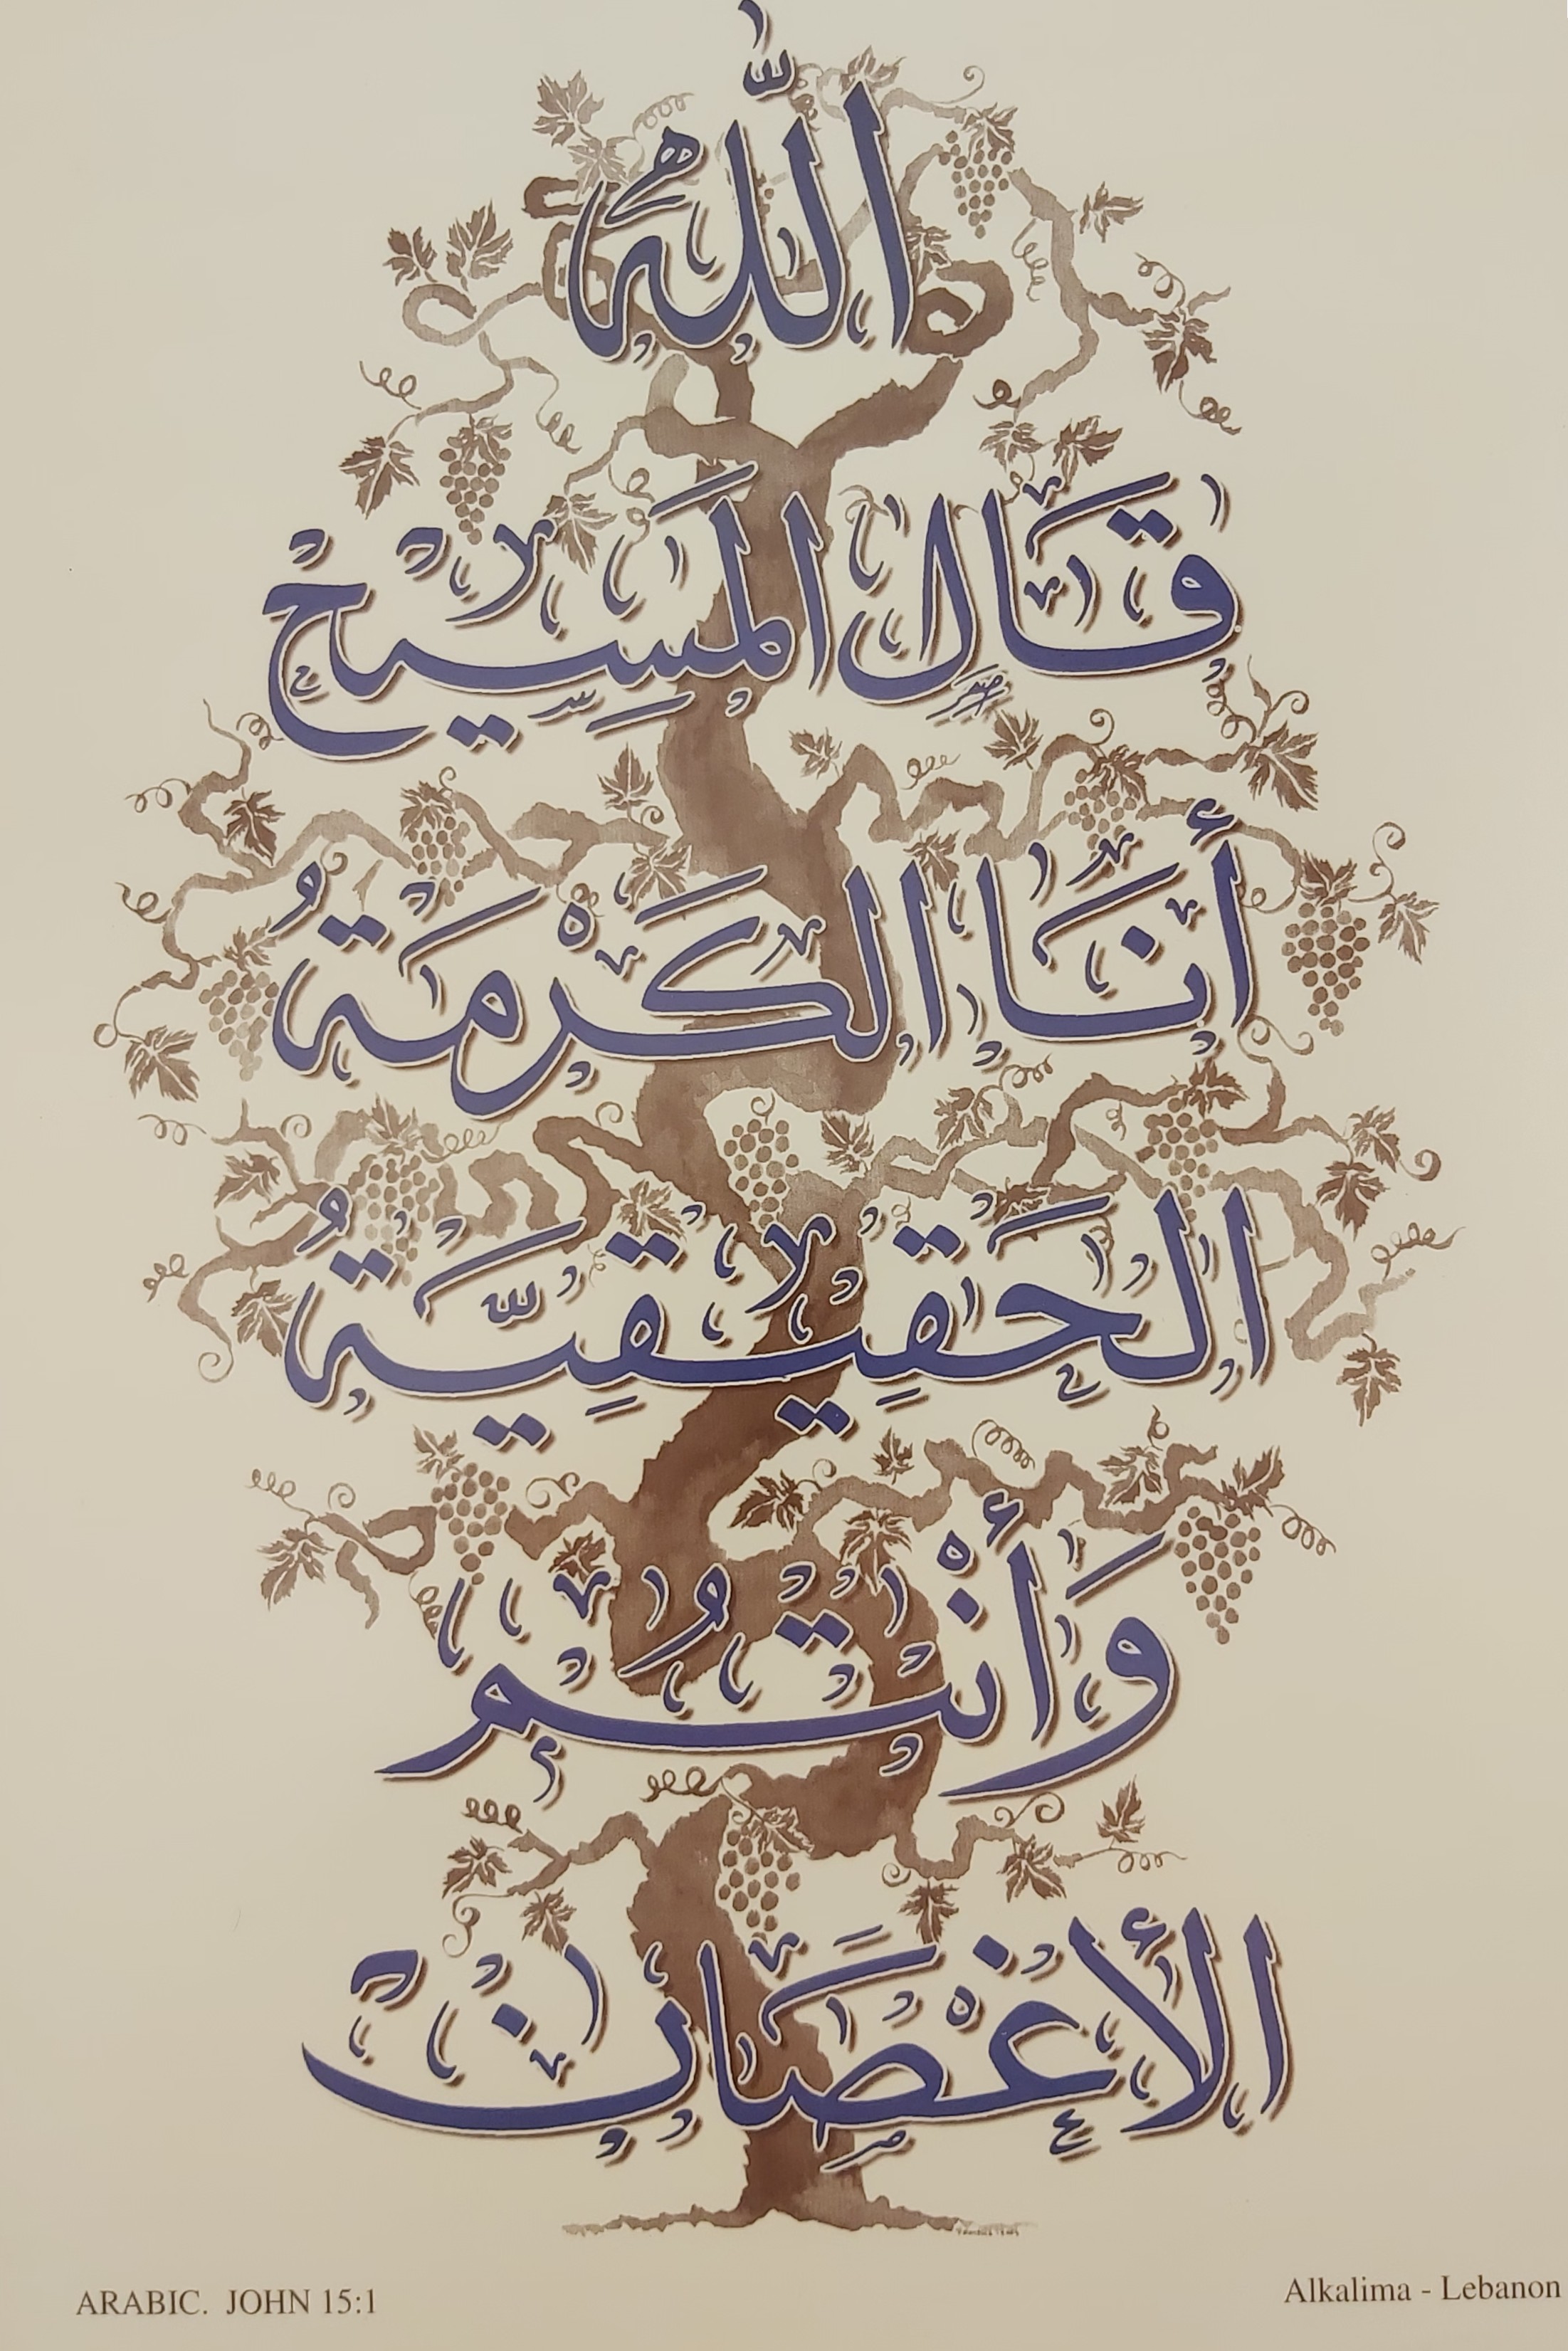 اللّٰهُ
قَالَ المَسِيح
أَنَا الكَرْمَةُ
الحَقِيقِيَّةُ
وَأَنْتُم
الأَغْصَان
ARABIC. JOHN 15:1
Alkalima - Lebanon